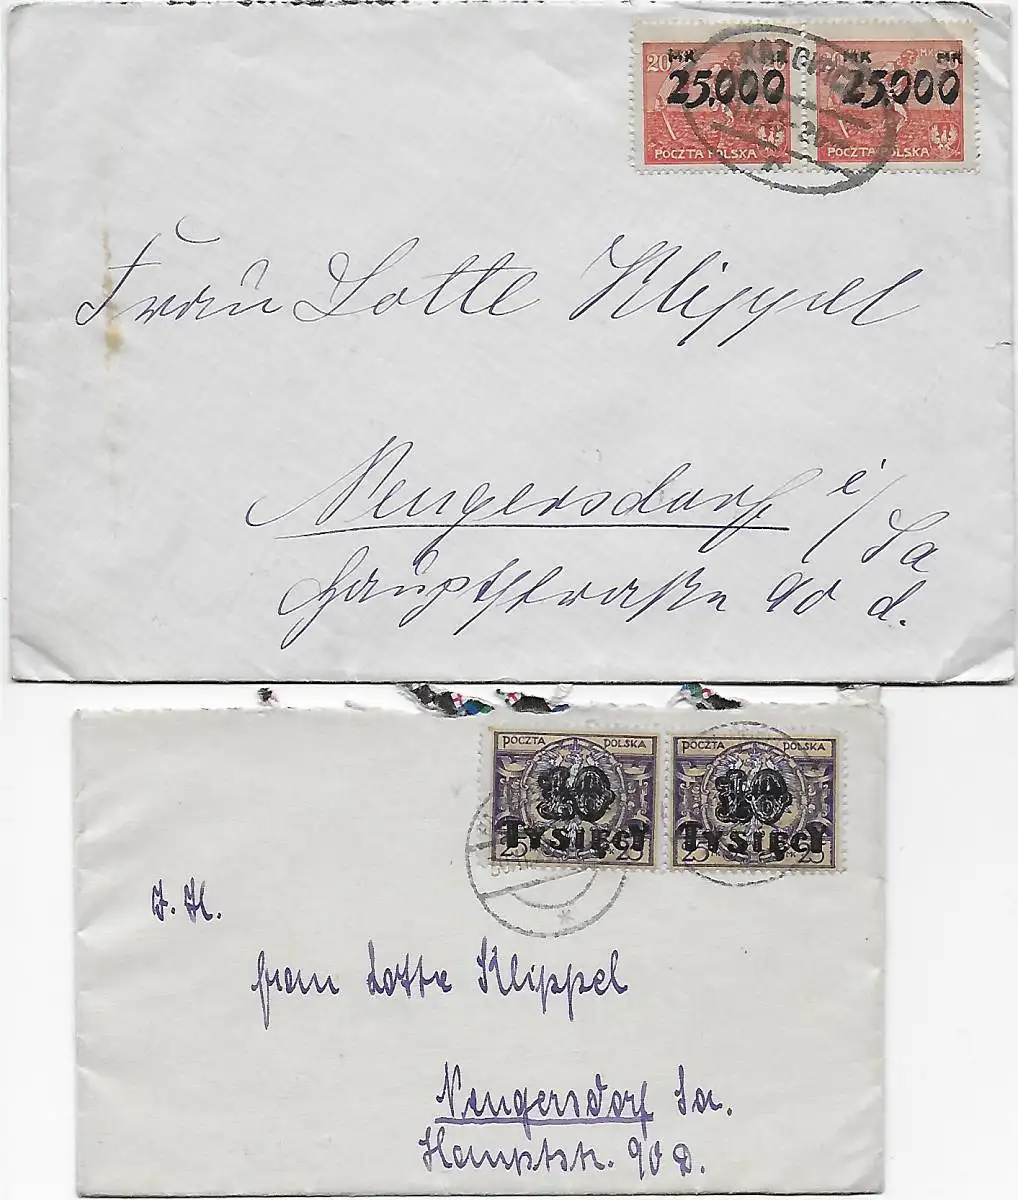 20 MK MK 20 MK MK
25.000 25.000
KATOWICE
POCZTA POLSKA POCZTA POLSKA
Frau Lotte Klippel
Neugersdorf i/Sa
Hauptstrasse 90 d.
POCZTA POLSKA POCZTA POLSKA
10 10
TYSIĘCY TYSIĘCY
25 MK 25 25 MK 25
J. H.
Frau Lotte Klippel
Neugersdorf Sa.
Hauptstr. 90 D.